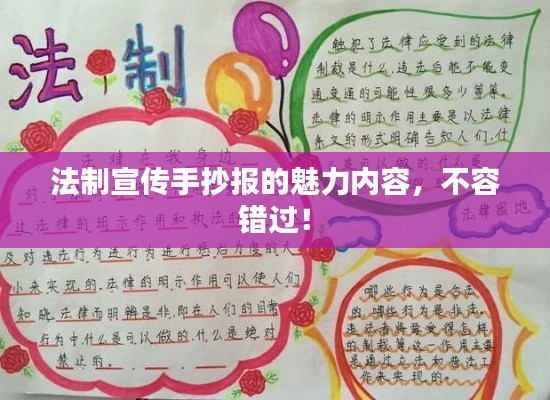 法制
触犯了法律应受到的法律
制裁是什么.违法后能不能变
通变通的可能性很多少等等.
法律的明示作用主要是以法律
条文的形式明确告知人们,什
法律在我身边
法制宣传手抄报的魅力内容，不容
错过！
法律园地
及对违法行为进行惩治力度的大
小来实现的.法律的明示作用可以使人们
知晓法律而明辨是非.即在人们的日常
行为中什么是可以做的.什么是绝对
禁止的.
哪些行为是合法
的.哪些行为是非法.
违法者将要受得怎样
的制裁等.这一作用主要
是通过立法和普法工
作来实现的.